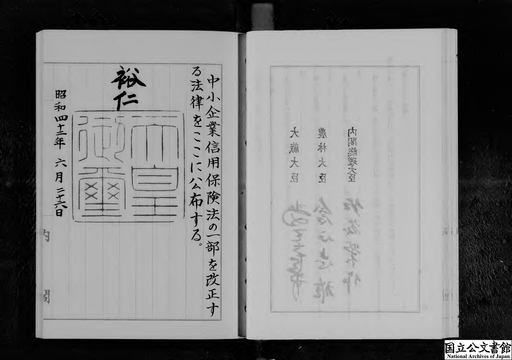 中小企業信用保険法の一部を改正す
る法律をここに公布する。
裕仁
天皇
御璽
昭和四十三年六月二十六日
内閣
内閣総理大臣
農林大臣
大蔵大臣
国立公文書館
National Archives of Japan